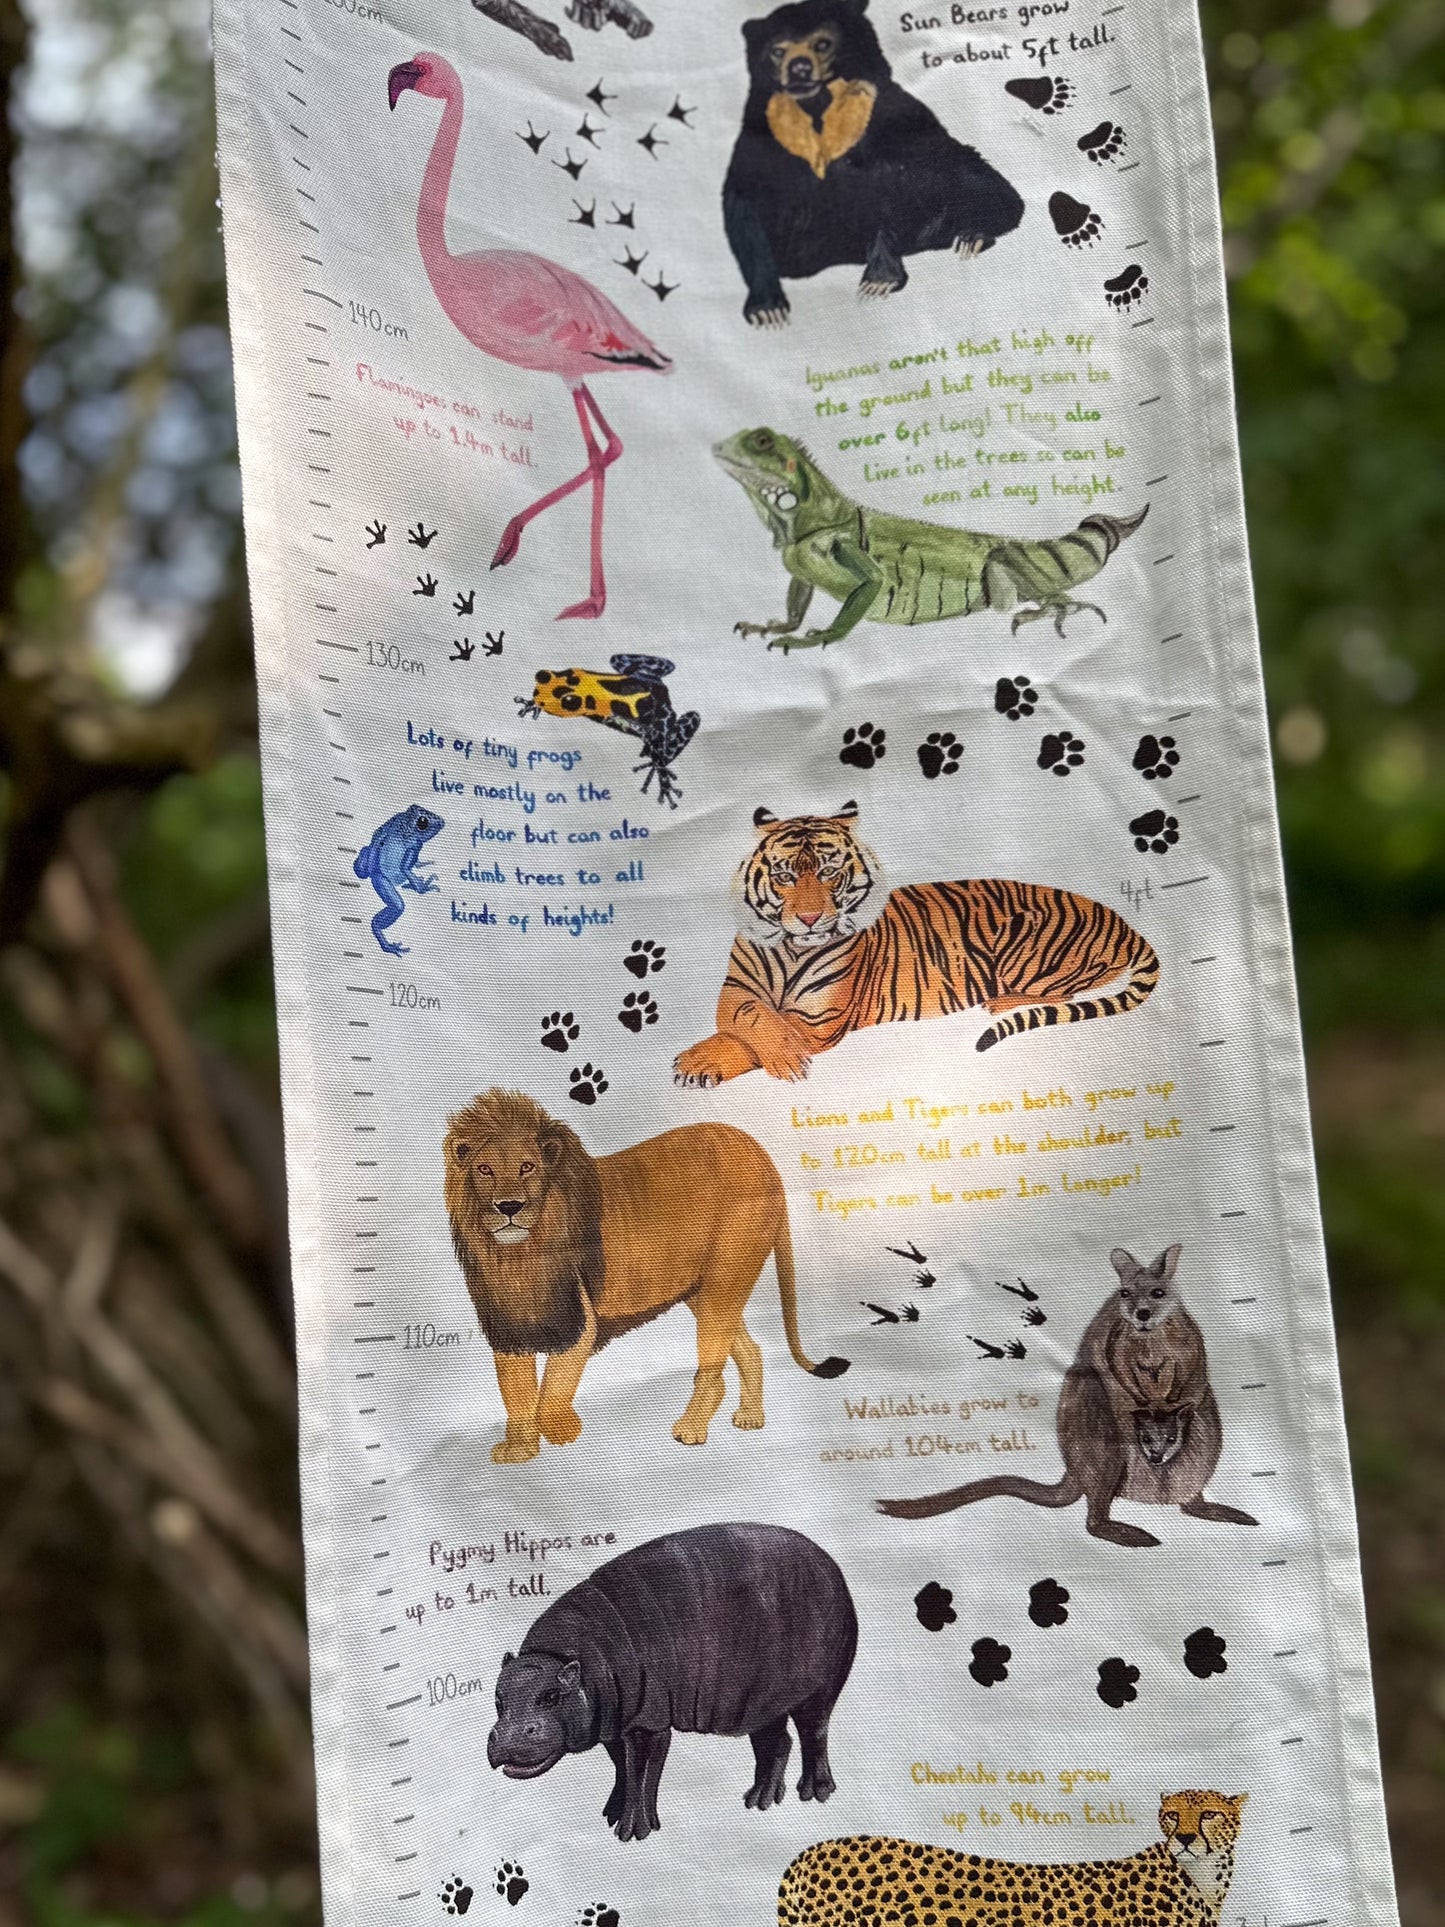 Sun Bears grow
to about 5ft tall.
140cm
Flamingoes can stand
up to 1.4m tall.
Iguanas aren't that high off
the ground but they can be
over 6ft long! They also
live in the trees so can be
seen at any height.
130cm
Lots of tiny frogs
live mostly on the
floor but can also
climb trees to all
kinds of heights!
4ft
120cm
Lions and Tigers can both grow up
to 120cm tall at the shoulder, but
Tigers can be over 1m longer!
110cm
Wallabies grow to
around 104cm tall.
Pygmy Hippos are
up to 1m tall.
100cm
Cheetahs can grow
up to 94cm tall.